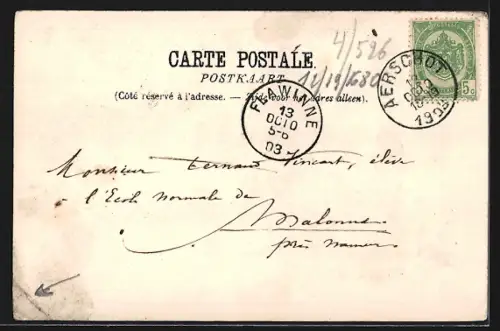 4/526
CARTE POSTALE.
POSTKAART
14/19/680
(Côté réservé à l'adresse. — Zijde voor het adres alleen).
AERSCHOT
1903
5c
FLAWINNE
13
OCTO
5-6
03
Monsieur Fernand Vincart, élève
à l'Ecole normale de
Malonne
près Namur